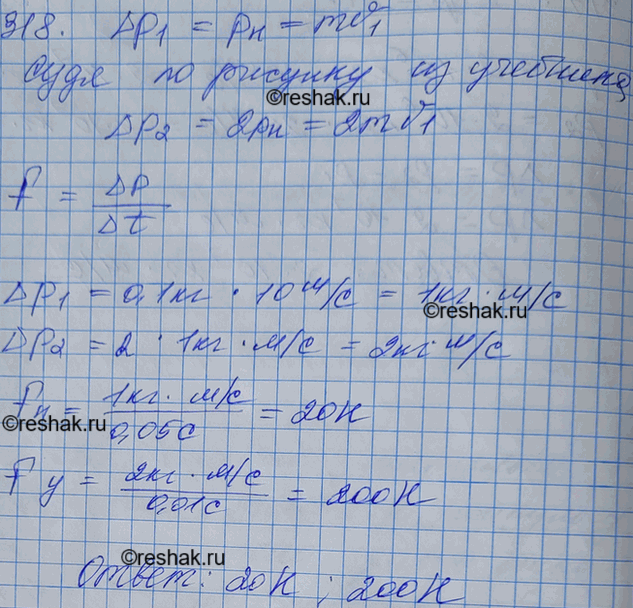 318. Δp₁ = pн = mv₁
Судя по рисунку из учебника,
©reshak.ru
Δp₂ = 2pн = 2mv₁
f = Δp / Δt
Δp₁ = 0,1кг · 10 м/с = 1кг · м/с
©reshak.ru
Δp₂ = 2 · 1кг · м/с = 2кг · м/с
Fн = 1кг · м/с / 0,05с = 20Н
©reshak.ru
Fу = 2кг · м/с / 0,01с = 200Н
©reshak.ru
Ответ: 20Н ; 200Н